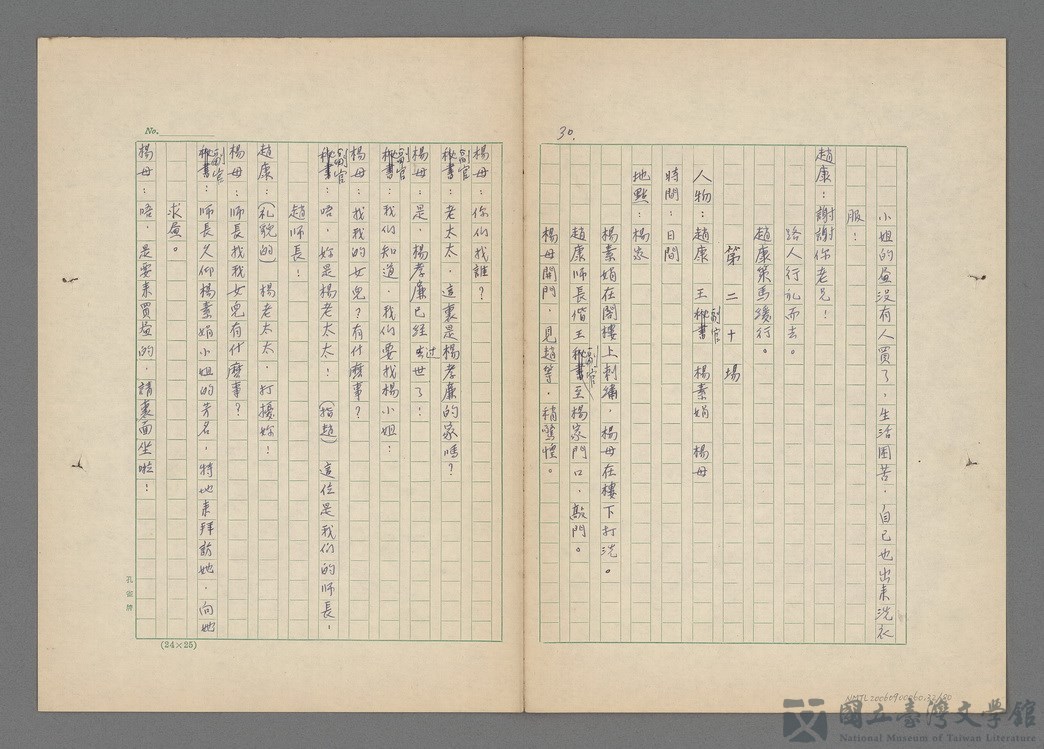 30.
小姐的畫沒有人買了，生活困苦，自己也出來洗衣
服！
趙康：謝謝你老兄！
路人行禮而去。
趙康策馬緩行。
第二十場
人物：趙康 王秘書副官 楊素娟 楊母
時間：日間
地點：楊家
楊素娟在閣樓上刺繡，楊母在樓下打洗。
趙康師長偕王秘書副官至楊家門口，敲門。
楊母開門，見趙等，稍驚惶。
No.
楊母：你们找誰？
秘書副官：老太太，這裏是楊孝廉的家嗎？
楊母：是，楊孝廉已經去过世了！
秘書副官：我们知道，我们要找楊小姐！
楊母：找我的女兒？有什麽事？
秘書副官：唔，妳是楊老太太！（指趙）這位是我们的师長，
趙师長！
趙康：（礼貌的）楊老太太，打擾妳！
楊母：师長找我女兒有什麽事？
秘書副官：师長久仰楊素娟小姐的芳名，特地来拜訪她，向她
求畫。
楊母：唔，是要来買畫的，請裏面坐啦！
孔雀牌
(24×25)
國立臺灣文學館
National Museum of Taiwan Literature